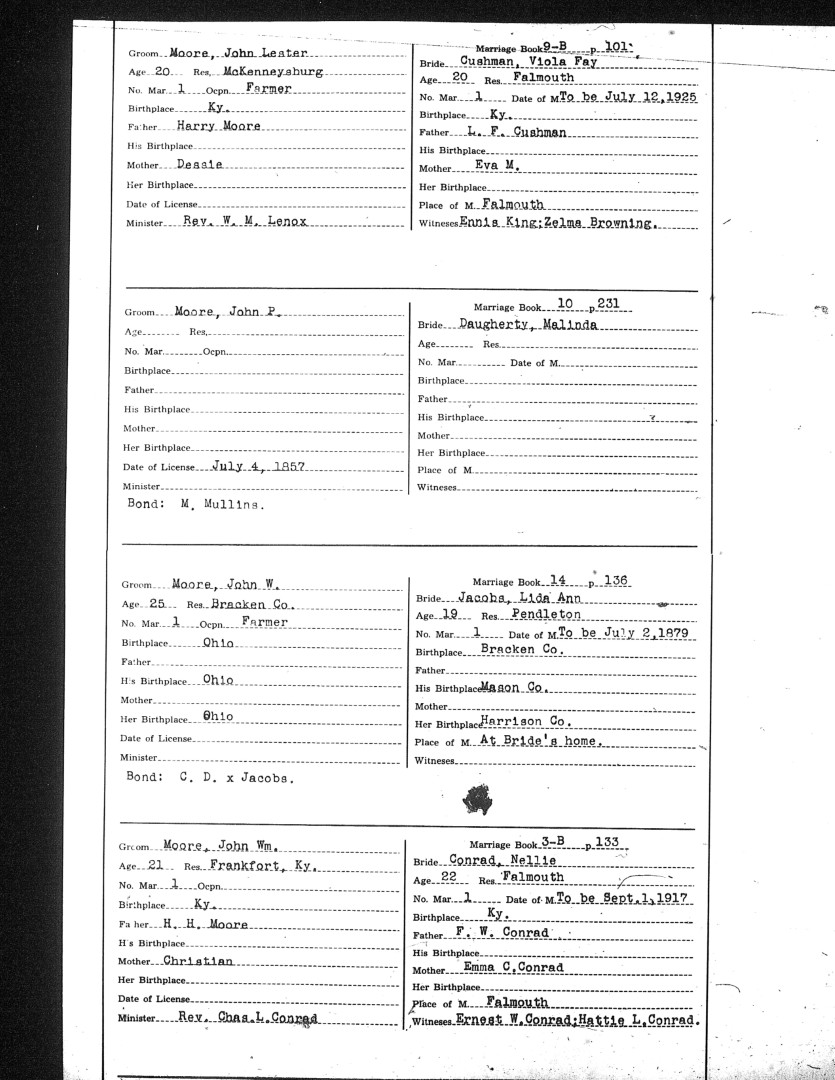 Groom Moore, John Lester
Age 20 Res. McKenneysburg
No. Mar. 1 Ocpn. Farmer
Birthplace Ky.
Father Harry Moore
His Birthplace
Mother Dessie
Her Birthplace
Date of License
Minister Rev. W. M. Lenox
Marriage Book 9-B p. 101
Bride Cushman, Viola Fay
Age 20 Res. Falmouth
No. Mar. 1 Date of M. To be July 12,1925
Birthplace Ky.
Father L. F. Cushman
His Birthplace
Mother Eva M.
Her Birthplace
Place of M. Falmouth
Witneses Ennis King;Zelma Browning.
Groom Moore, John P.
Age Res.
No. Mar. Ocpn.
Birthplace
Father
His Birthplace
Mother
Her Birthplace
Date of License July 4, 1857
Minister
Bond: M. Mullins.
Marriage Book 10 p. 231
Bride Daugherty, Malinda
Age Res.
No. Mar. Date of M.
Birthplace
Father
His Birthplace
Mother
Her Birthplace
Place of M.
Witneses
Groom Moore, John W.
Age 25 Res. Bracken Co.
No. Mar. 1 Ocpn. Farmer
Birthplace Ohio
Father
His Birthplace Ohio
Mother
Her Birthplace Ohio
Date of License
Minister
Bond: C. D. x Jacobs.
Marriage Book 14 p. 136
Bride Jacobs, Lida Ann
Age 19 Res. Pendleton
No. Mar. 1 Date of M. To be July 2,1879
Birthplace Bracken Co.
Father
His Birthplace Mason Co.
Mother
Her Birthplace Harrison Co.
Place of M. At Bride's home.
Witneses
Groom Moore, John Wm.
Age 21 Res. Frankfort, Ky.
No. Mar. 1 Ocpn.
Birthplace Ky.
Father H. H. Moore
His Birthplace
Mother Christian
Her Birthplace
Date of License
Minister Rev. Chas.L.Conrad
Marriage Book 3-B p. 133
Bride Conrad, Nellie
Age 22 Res. Falmouth
No. Mar. 1 Date of M. To be Sept.1,1917
Birthplace Ky.
Father F. W. Conrad
His Birthplace
Mother Emma C.Conrad
Her Birthplace
Place of M. Falmouth
Witneses Ernest W.Conrad;Hattie L.Conrad.